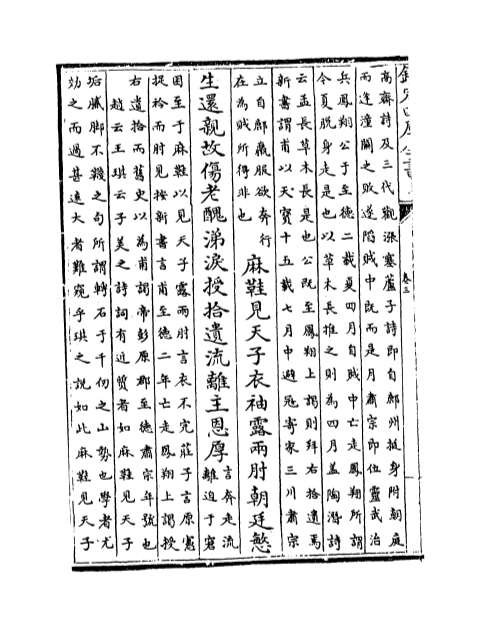 欽定四庫全書
卷三
高齋詩及三代觀漲塞蘆子詩即自鄜州挺身附朝庭
而逢潼關之敗遂陷賊中既而是月肅宗即位靈武治
兵鳳翔公于至德二載夏四月自賊中亡走鳳翔所謂
今夏脱身走是也以草木長推之則為四月盖陶潛詩
云孟長草木長是也公既至鳳翔上謁則拜右拾遺焉
新書謂甫以天寳十五載七月中避冦寄家三川肅宗
立自鄜羸服欲奔行
在為賊所得非也
麻鞋見天子衣袖露兩肘朝廷慜
生還親故傷老醜涕淚授拾遺流離主恩厚
言奔走流
離迫于窘
困至于麻鞋以見天子露兩肘言衣不完莊子言原憲
捉衿而肘見按新書言甫至德二年亡走鳳翔上謁授
右遺拾而舊史以為甫謁帝彭原郡至德肅宗年號也
趙云王琪云子美之詩詞有近質者如麻鞋見天子
垢膩脚不韈之句所謂轉石于千仞之山勢也學者尤
効之而過甚逺大者難窺乎琪之說如此麻鞋見天子